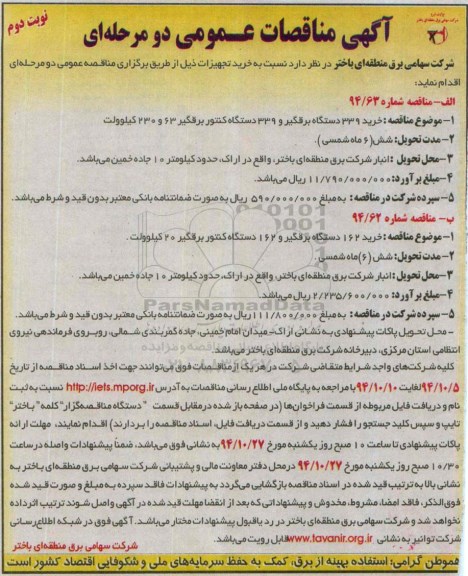 نوبت دوم
آگهی مناقصات عـمومی دو مرحله‌ای
شرکت سهامی برق منطقه‌ای باختر در نظر دارد نسبت به خرید تجهیزات ذیل از طریق برگزاری مناقصه عمومی دو مرحله‌ای
اقدام نماید:
الف- مناقصه شماره ۹۴/۶۳
۱- موضوع مناقصه: خرید ۳۳۹ دستگاه برقگیر و ۳۳۹ دستگاه کنتور برقگیر ۶۳ و ۲۳۰ کیلوولت
۲- مدت تحویل: شش (۶ ماه شمسی).
۳- محل تحویل: انبار شرکت برق منطقه‌ای باختر، واقع در اراک، حدود کیلومتر ۱۰ جاده خمین می‌باشد.
۴- مبلغ برآورد: ۱۱/۷۹۰/۰۰۰/۰۰۰ ریال می‌باشد.
۵- سپرده شرکت در مناقصه: به مبلغ ۵۹۰/۰۰۰/۰۰۰ ریال به صورت ضمانتنامه بانکی معتبر بدون قید و شرط می‌باشد.
ب- مناقصه شماره ۹۴/۶۲
۱- موضوع مناقصه: خرید ۱۶۲ دستگاه برقگیر و ۱۶۲ دستگاه کنتور برقگیر ۲۰ کیلوولت.
۲- مدت تحویل: شش (۶) ماه شمسی.
۳- محل تحویل: انبار شرکت برق منطقه‌ای باختر، واقع در اراک، حدود کیلومتر ۱۰ جاده خمین می‌باشد.
۴- مبلغ برآورد: ۲/۲۳۵/۶۰۰/۰۰۰ ریال می‌باشد.
۵- سپرده شرکت در مناقصه: به مبلغ ۱۱۱/۸۰۰/۰۰۰ ریال به صورت ضمانتنامه بانکی معتبر بدون قید و شرط می‌باشد.
- محل تحویل پاکات پیشنهادی به نشانی اراک- میدان امام خمینی، جاده کمربندی شمالی، روبروی فرماندهی نیروی
انتظامی استان مرکزی، دبیرخانه شرکت برق منطقه‌ای باختر می‌باشد.
کلیه شرکت‌های واجد شرایط متقاضی شرکت در هر یک از مناقصات فوق می‌توانند جهت اخذ اسناد مناقصه از تاریخ
۹۴/۱۰/۵ لغایت ۹۴/۱۰/۱۰ با مراجعه به پایگاه ملی اطلاع رسانی مناقصات به آدرس http://iets.mporg.ir نسبت به ثبت
نام و دریافت فایل مربوطه از قسمت فراخوان‌ها (در صفحه باز شده در مقابل قسمت " دستگاه مناقصه‌گزار" کلمه " باختر"
تایپ و سپس کلید جستجو را فشار دهید و از قسمت دریافت فایل، اسناد مناقصه را بردارند) اقدام نمایند، مهلت ارائه
پاکات پیشنهادی تا ساعت ۱۰ صبح روز یکشنبه مورخ ۹۴/۱۰/۲۷ به نشانی فوق می‌باشد، ضمناً پیشنهادات واصله در ساعت
۱۰/۳۰ صبح روز یکشنبه مورخ ۹۴/۱۰/۲۷ در محل دفتر معاونت مالی و پشتیبانی شرکت سهامی برق منطقه‌ای باختر به
نشانی بالا به ترتیب قید شده در اسناد مناقصه بازگشایی می‌گردد به پیشنهادات فاقد سپرده به مبلغ و صورت قید شده
فوق‌الذکر، فاقد امضا، مشروط، مخدوش و پیشنهاداتی که بعد از انقضا مهلت قید شده در آگهی واصل شوند ترتیب اثر داده
نخواهد شد و شرکت سهامی برق منطقه‌ای باختر در رد یا قبول پیشنهادات مختار می‌باشد. آگهی فوق در شبکه اطلاع‌رسانی
شرکت توانیر به نشانی www.tavanir.org.ir قابل رویت می‌باشد.
شرکت سهامی برق منطقه‌ای باختر
هموطن گرامی: استفاده بهینه از برق، کمک به حفظ سرمایه‌های ملی و شکوفایی اقتصاد کشور است
ParsNamadData